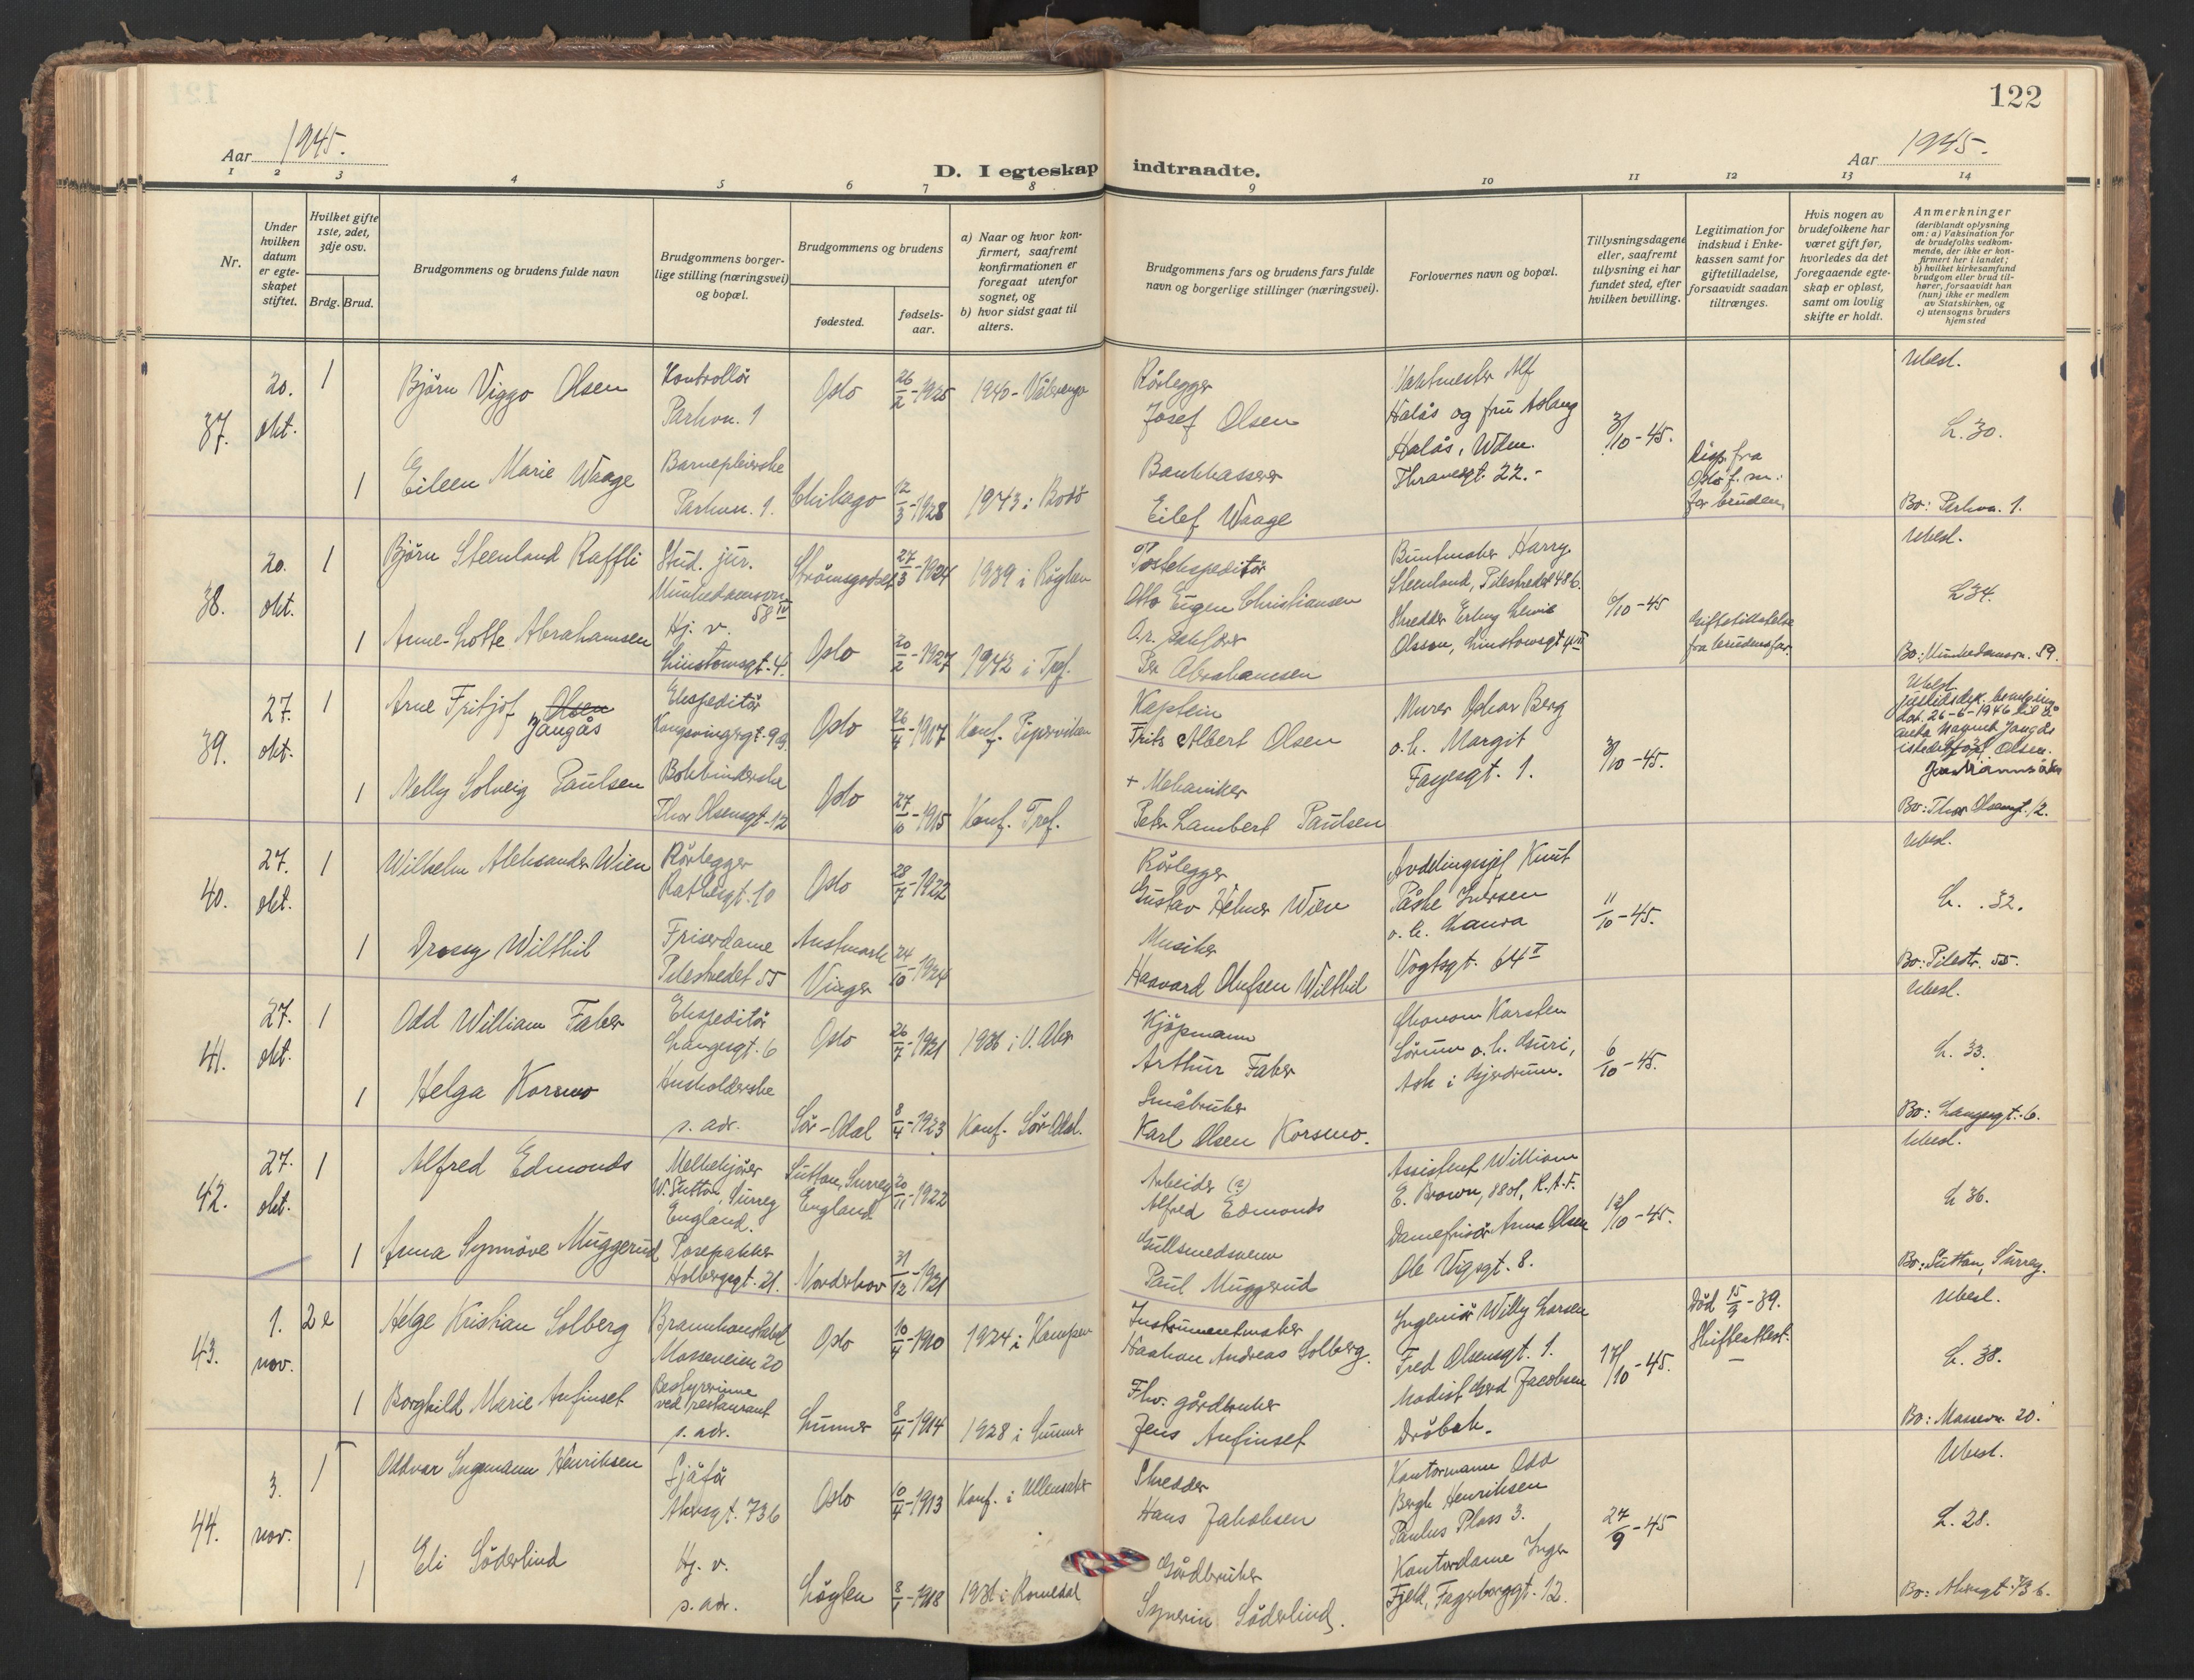 122
Aar 1945.
Aar 1945.
D. I egteskap indtraadte.
1 2 3 4 5 6 7 8 9 10 11 12 13 14
Nr.
Under hvilken datum er egteskapet stiftet.
Hvilket gifte 1ste, 2det, 3dje osv.
Brdg. Brud.
Brudgommens og brudens fulde navn
Brudgommens borgerlige stilling (næringsvei) og bopæl.
Brudgommens og brudens
fødested.
fødselsaar.
a) Naar og hvor konfirmert, saafremt konfirmationen er foregaat utenfor sognet, og
b) hvor sidst gaat til alters.
Brudgommens fars og brudens fars fulde navn og borgerlige stillinger (næringsvei).
Forlovernes navn og bopæl.
Tillysningsdagene eller, saafremt tillysning ei har fundet sted, efter hvilken bevilling.
Legitimation for indskud i Enkekassen samt for giftetilladelse, forsaavidt saadan tiltrænges.
Hvis nogen av brudefolkene har været gift før, hvorledes da det foregaaende egteskap er opløst, samt om lovlig skifte er holdt.
Anmerkninger (deriblandt oplysning om: a) Vaksination for de brudefolks vedkommende, der ikke er konfirmert her i landet; b) hvilket kirkesamfund brudgom eller brud tilhører, forsaavidt han (hun) ikke er medlem av Statskirken, og c) utensogns bruders hjemsted
37. 20. okt. 1 Bjørn Viggo Olsen Kontrollør Parkvn. 1 Oslo 26/2-1925 1940 - Vålerenga
Rørlegger Josef Olsen
Vaktmester Alf Halås og fru Aslaug Halås, Wdm. Thranesgt. 22.-
3/10-45.
Ubesl.
L. 30.
1 Eileen Marie Waage Barnepleierske Parkvn. 1. Chikago 12/3-1928 1943 i Bodø
Bankkasserer Eilef Waage
Disp. fra Oslo f.m. for bruden
Bo: Parkvn. 1.
38. 20. okt. 1 Bjørn Steenland Raffli Stud. jur. Munkedamsvn. 58 IV Strømsgodset 27/3-1924 1939 i
Postekspeditør Otto Eugen Christiansen
Buntmaker Harry Steenland, Pilestredet 48 b.
Skredder Erling Olsson, Linstowsgt 4 III
6/10-45
Ubesl.
L 34.
1 Anne-Lotte Abrahamsen Hj. v. Linstowsgt. 4. Oslo 20/2-1927 1942 i Tref.
O.r. sakfører Per Abrahamsen
Giftetillatelse fra brudens far.
Bo: Munkedamsvn. 59.
39. 27. okt. 1 Arne Fritjof Olsen Jangås Ekspeditør Kongsvingergt. 9 Oslo 26/4-1917 Konf. Pipervika
Kaptein Frits Albert Olsen
Murer Oskar Berg o.h. Margit Fagesgt. 1.
3/10-45.
Ubesl.
Justisdep. bevilging dat. 26-6-1946 til å anta navnet Jangås istedetfor Olsen.
1 Nelly Solveig Paulsen Bokbinderske Thor Olsensgt. 12 Oslo 27/10-1915 Konf. Tref.
+ Mekaniker Peter Lambert Paulsen
Bo: Thor Olsensgt. 12.
40. 27. okt. 1 Wilhelm Aleksander Wien Rørlegger Rathkesgt. 10 Oslo 28/7-1922
Rørlegger Gustav Helmer Wien
Avdelingssjef Knut Påske Iversen o.h. Laura Vogtsgt. 64 II
11/10-45.
Ubesl.
L. 32.
1 Drossy Wilthil Friserdame Pilestredet 55 Austmark Vinger 24/10-1924
Musiker Haavard Olufsen Wilthil
Bo: Pilestr. 55.
41. 27. okt. 1 Odd William Faber Ekspeditør Langesgt. 6 Oslo 26/7-1921 1936 i V. Aker
Kjøpmann Arthur Faber
Karsten Sørum o.h. Guri, Ask i Gjerdrum.
6/10-45.
Ubesl.
L. 33.
1 Helga Korsmo Husholderske s. adr. Sør-Odal 8/4-1923 Konf. Sør-Odal.
Småbruker Karl Olsen Korsmo.
Bo: Langesgt. 6.
42. 27. okt. 1 Alfred Edmonds Melkekjører W. Sutton, Surrey England. Sutton, Surrey England 20/11-1922
Arbeider (?) Alfred Edmonds
Assistent William E. Brown, 8801, R.A.F.
Damefrisør Anna Olsen Ole Vigsgt. 8.
12/10-45.
Ubesl.
L 36.
1 Anna Synnøve Muggerud Posepakker Holbergsgt. 21. Norderhov 31/12-1921
Gullsmedsvenn Paul Muggerud
Bo: Sutton, Surrey.
43. 1. nov. 2 e Helge Kristian Solberg Brannkonstabel Mosseveien 20 Oslo 10/4-1910 1924 i Kampen
Instrumentmaker Haakon Andreas Solberg.
Ingeniør Willy Larsen Fred Olsensgt. 1.
Modist Gerd Jacobsen Drøbak.
17/10-45.
Død 15/9-39. Skifteattest.
Ubesl.
L. 38.
1 Borghild Marie Anfinset Bestyrerinne ved restaurant s. adr. Lunner 8/4-1914 1928 i Lunner
Fhv. gårdbruker Jens Anfinset
Bo: Mossevn. 20.
44. 3. nov. 1 Oddvar Ingemann Henriksen Sjåfør Akersgt. 73 b Oslo 10/4-1913 Konf. i Ullensaker
Skredder Hans Jakobsen
Kontormann Odd Bergh Henriksen Paulus Plass 3.
Kontordame Inger Fjeld, Fagerborggt. 12.
27/9-45
Ubesl.
L. 28.
1 Eli Söderlind Hj. v. s. adr. Løyten 8/1-1918 1931 i Romedal
Gårdbruker Severin Söderlind.
Bo: Akersgt. 73 b.